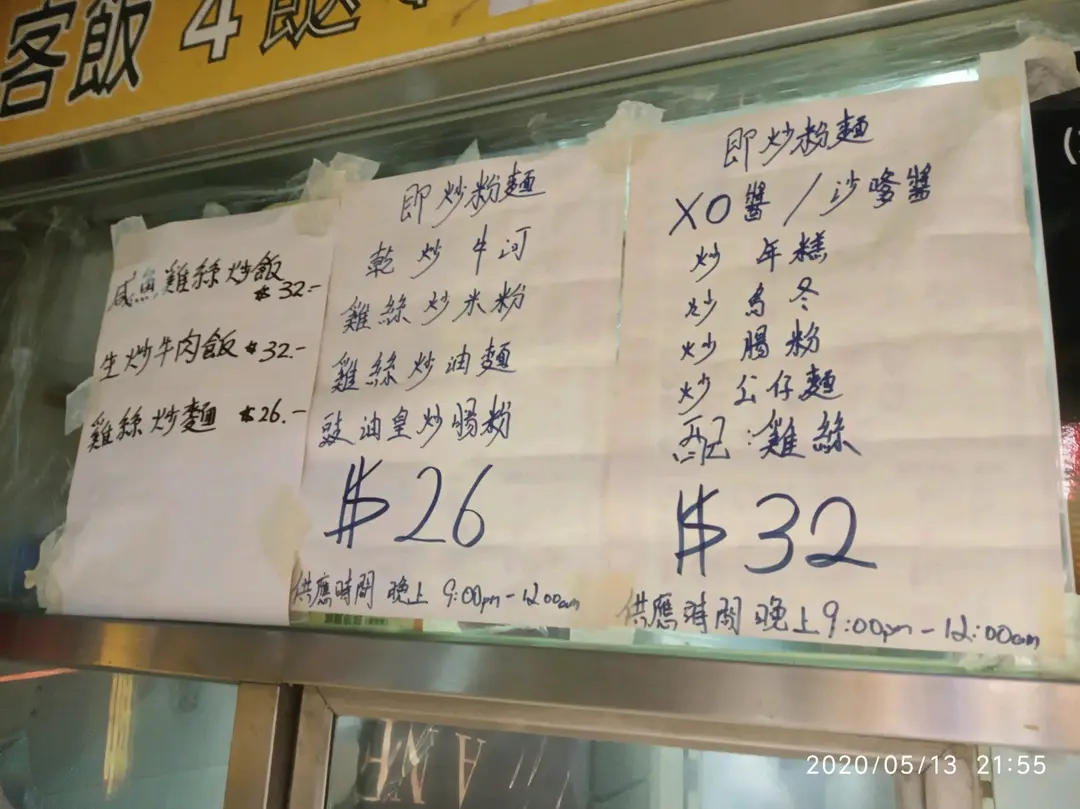 客飯 4 餸
咸魚雞絲炒飯
$32.-
生炒牛肉飯 $32.-
雞絲炒麵 $26.-
即炒粉麵
乾炒牛河
雞絲炒米粉
雞絲炒油麵
豉油皇炒腸粉
$26
供應時間 晚上 9:00pm-12:00am
即炒粉麵
XO醬/沙嗲醬
炒年糕
炒烏冬
炒腸粉
炒公仔麵
配:雞絲
$32
供應時間 晚上9:00pm-12:00am
2020/05/13 21:55